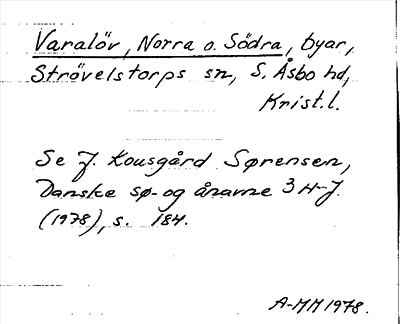 Varalöv, Norra o. Södra, byar,
Strövelstorps sn, S. Åsbo hd,
Krist.l.
Se J. Kousgård Sørensen,
Danske sø- og ånavne 3 H-J.
(1978), s. 184.
A-MM 1978.